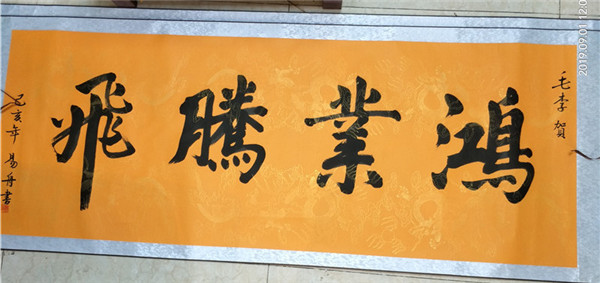 毛李贺
鴻業騰飛
己亥年 易舟書
2019.09.01 12:0